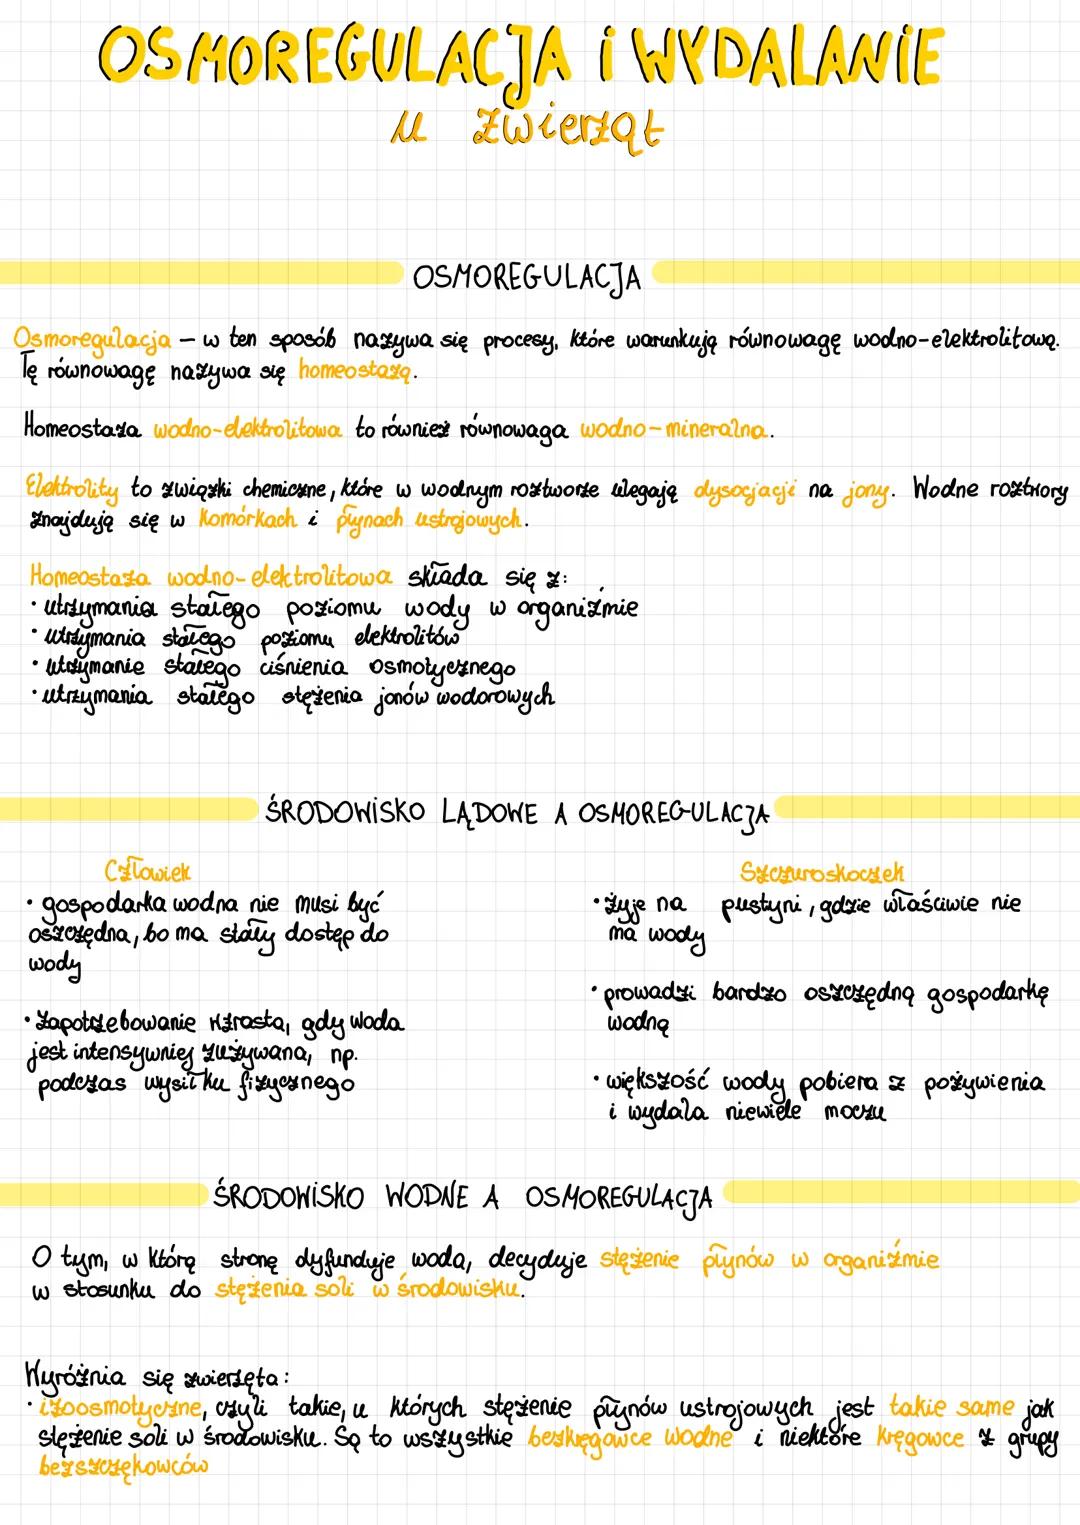 OSMOREGULACJA i WYDALANIE
u zwierząt
OSMOREGULACJA
Osmoregulacja – w ten sposób nazywa się procesy, które warunkują równowagę wodno-elektrolitową.
Tę równowagę nazywa się homeostazą.
Homeostaza wodno-elektrolitowa to również równowaga wodno-mineralna.
Elektrolity to związki chemiczne, które w wodnym roztworze ulegają dysocjacji na jony. Wodne roztwory
znajdują się w komórkach i płynach ustrojowych.
Homeostaza wodno-elektrolitowa składa się z:
• utrzymania stałego poziomu wody w organizmie
• utrzymania stałego poziomu elektrolitów
• utrzymanie stałego ciśnienia osmotycznego
• utrzymania stałego stężenia jonów wodorowych
ŚRODOWISKO LĄDOWE A OSMOREGULACJA
Człowiek Szczuroskoczek
• gospodarka wodna nie musi być
oszczędna, bo ma stały dostęp do
wody
• zapotrzebowanie wzrasta, gdy woda
jest intensywniej zużywana, np.
podczas wysiłku fizycznego
• żyje na pustyni, gdzie właściwie nie
ma wody
• prowadzi bardzo oszczędną gospodarkę
wodną
• większość wody pobiera z pożywienia
i wydala niewiele moczu
ŚRODOWISKO WODNE A OSMOREGULACJA
O tym, w którą stronę dyfunduje woda, decyduje stężenie płynów w organizmie
w stosunku do stężenia soli w środowisku.
Wyróżnia się zwierzęta:
• izoosmotyczne, czyli takie, u których stężenie płynów ustrojowych jest takie same jak
stężenie soli w środowisku. Są to wszystkie bezkręgowce wodne i niektóre kręgowce z grupy
bezszczękowców